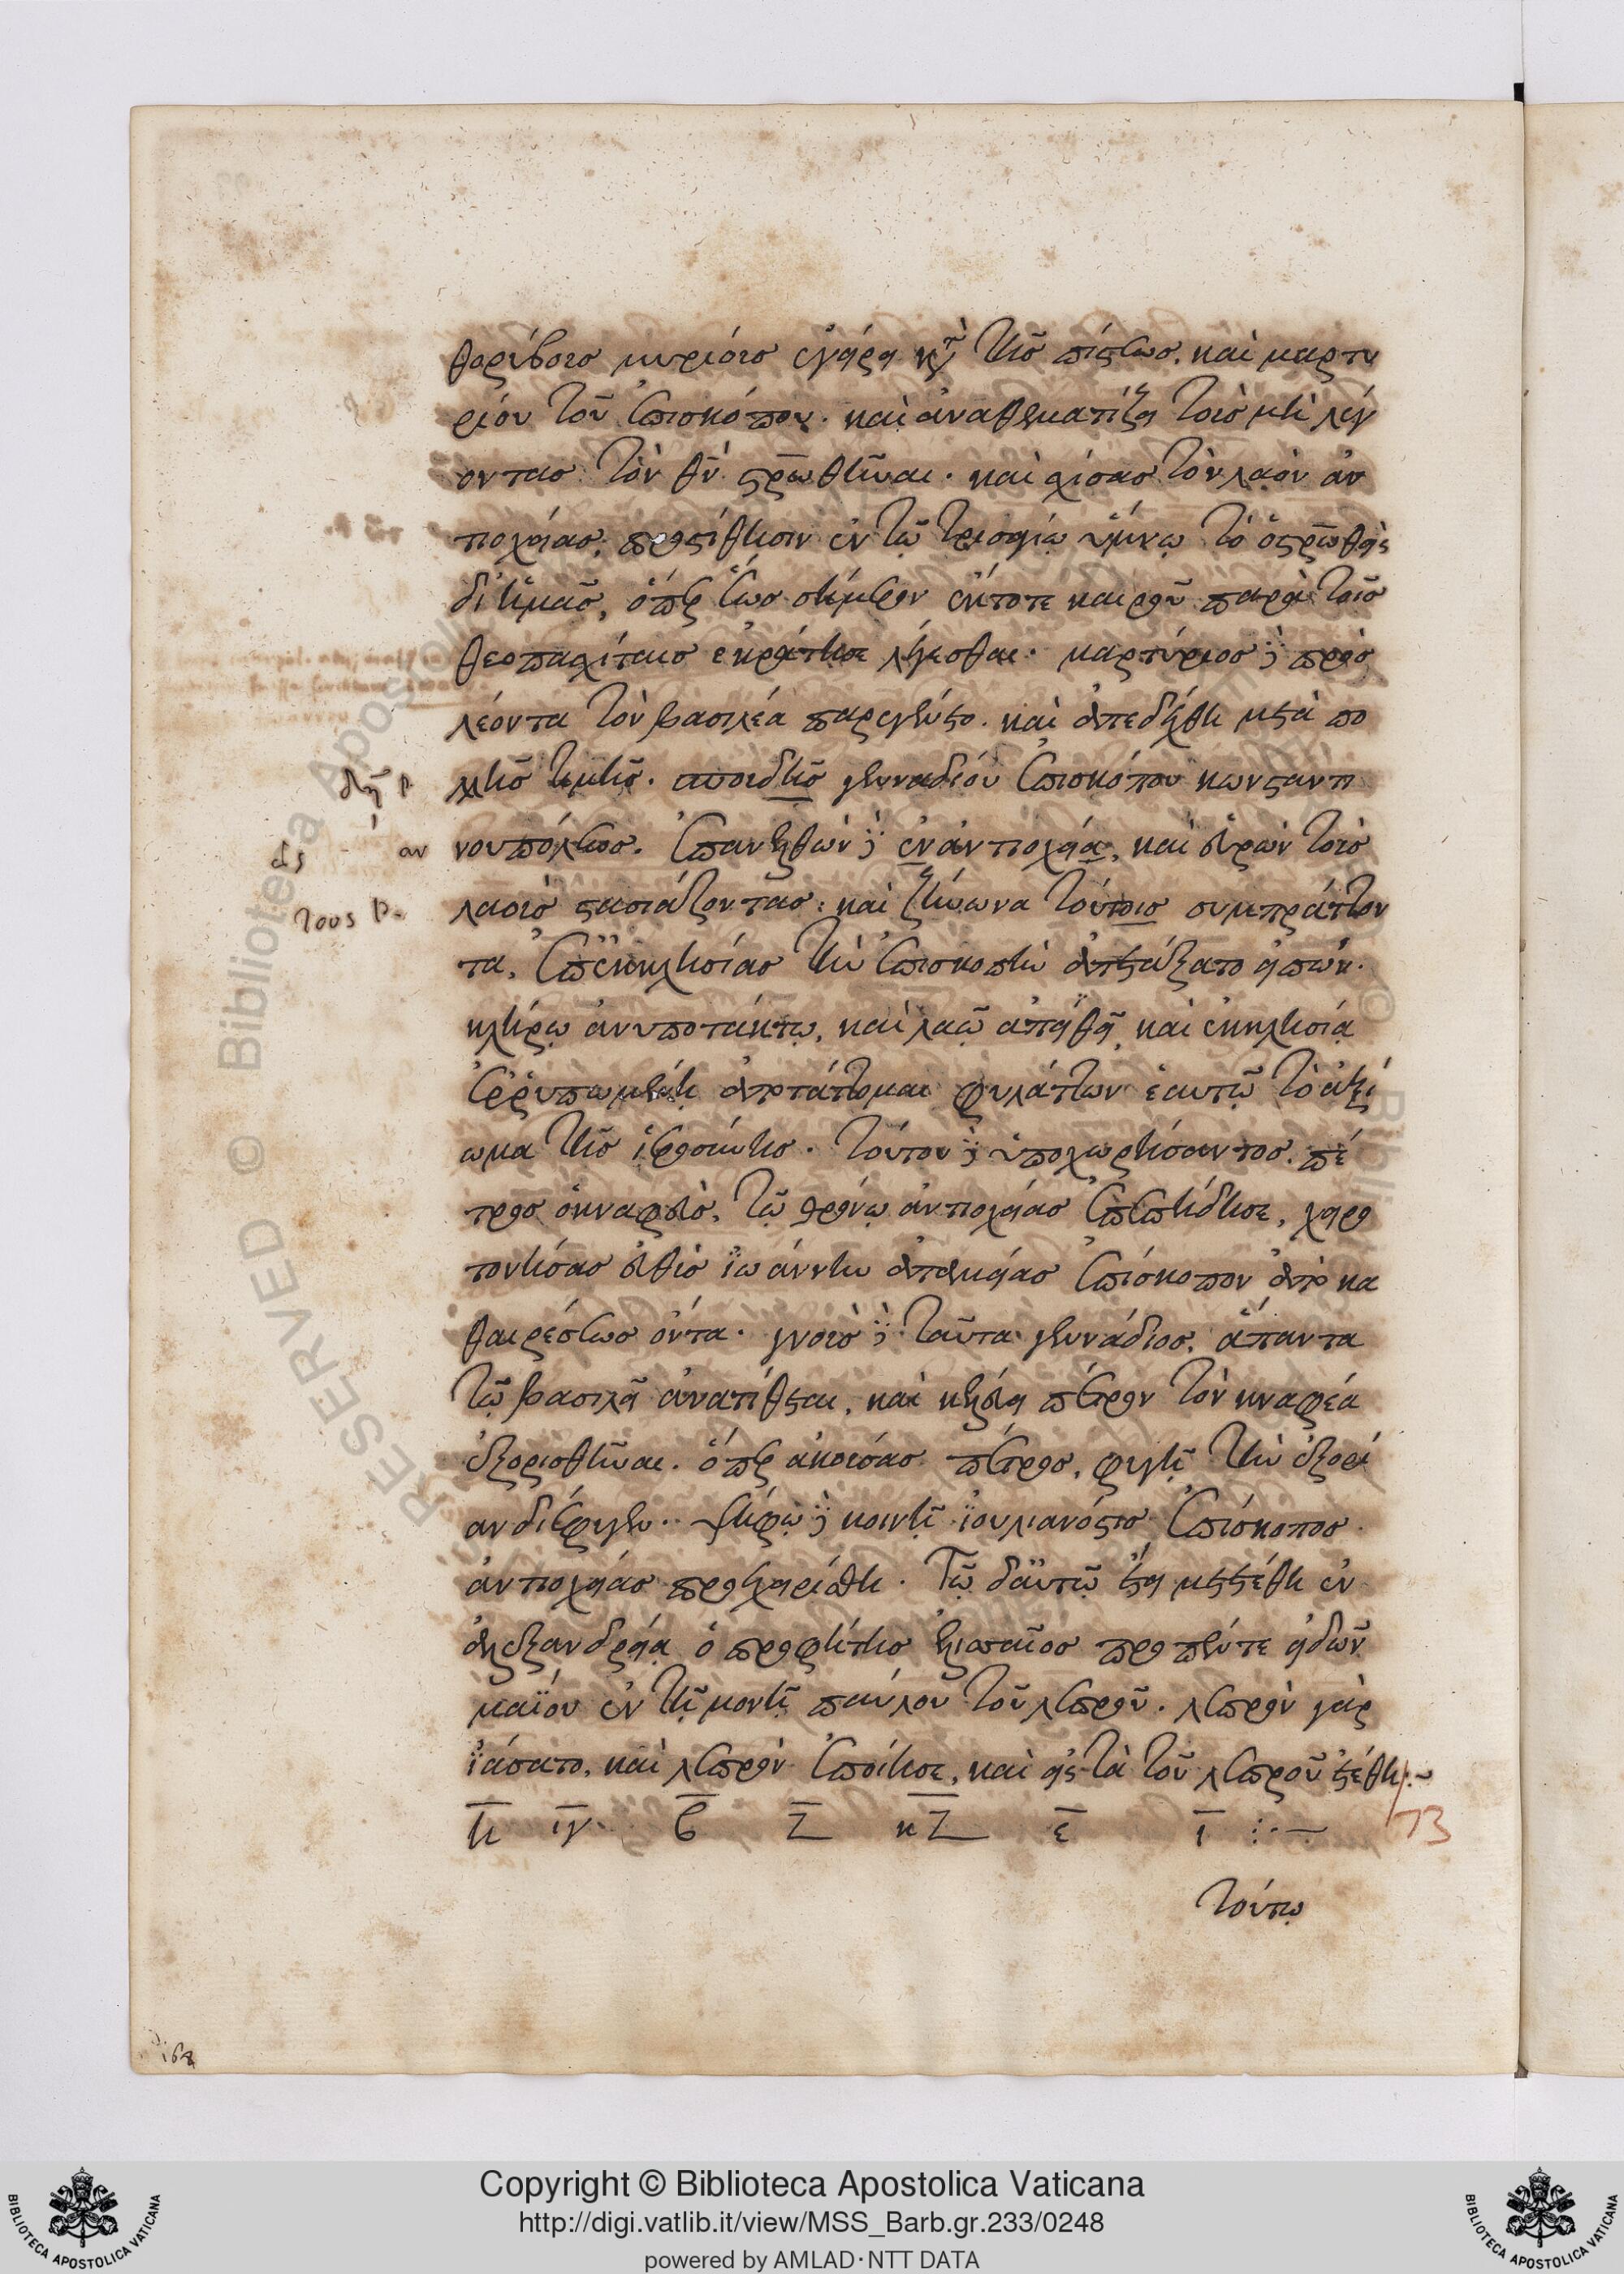 θορύβους μυρίους ἐγείρει κατὰ τῆς πίστεως. καὶ μαρτυ
ρίου τοῦ ἐπισκόπου. καὶ ἀναθεματίζει τοὺς μὴ λέγ
οντας τὸν θν̄ σρ̄ωθῆναι. καὶ σχίσας τὸν λαὸν ἀν
τιοχείας, προστίθησιν ἐν τῷ τρισαγίῳ ὕμνῳ τὸ ὁ σρ̄ωθεὶς
δι' ἡμᾶς, ὅπερ ἕως σήμερον ἔκτοτε καιροῦ παρὰ τοῖς
θεοπασχίταις ἐκράτησε λέγεσθαι. μαρτύριος δὲ πρὸς
λέοντα τὸν βασιλέα παρεγένετο. καὶ ἀπεδέχθη μετὰ πο
λλῆς τιμῆς. σπουδῆς γενναδίου ἐπισκόπου κωνσταντι
νουπόλεως. ἐπανελθὼν δὲ ἐν ἀντιοχείᾳ, καὶ εὑρὼν τοὺς
λαοὺς στασιάζοντας. καὶ ζήνωνα τούτοις συμπράττον
τα, ἐπ' ἐκκλησίας τὴν ἐπισκοπὴν ἀπετάξατο εἰπών.
κλήρῳ ἀνυποτάκτῳ, καὶ λαῷ ἀπειθεῖ, καὶ ἐκκλησίᾳ
ἐρρυπωμένῃ ἀποτάττομαι φυλάττων ἑαυτῷ τὸ ἀξί
ωμα τῆς ἱερωσύνης. τούτου δὲ ὑποχωρήσαντος. πέ
τρος ὁ κναφεὺς, τῷ θρόνῳ ἀντιοχείας ἐπεπήδησε, χειρο
τονήσας εὐθὺς ἰωάννην ἀπαμείας ἐπίσκοπον ἀπὸ κα
θαιρέσεως ὄντα. γνοὺς δὲ ταῦτα γεννάδιος, ἅπαντα
τῷ βασιλεῖ ἀνατίθεται. καὶ κελεύει πέτρον τὸν κναφέα
ἐξορισθῆναι. ὅπερ ἀκούσας πέτρος, φυγῇ τὴν ἐξορί
αν διέφυγεν. ψήφῳ δὲ κοινῇ ἰουλιανός τις ἐπίσκοπος
ἀντιοχείας προεχειρίσθη. Τῷ δ' αὐτῷ ἔτει μετετέθη ἐν
ἀλεξανδρείᾳ ὁ προφήτης ἐλισσαῖος πρὸ πέντε εἰδῶν
μαΐου ἐν τῇ μονῇ παύλου τοῦ λεπροῦ. λεπρὸν γὰρ
ἰάσατο, καὶ λεπρὸν ἐποίησε, καὶ εἰς τὰ τοῦ λεπροῦ ἐτέθη:~
η̄ ιγ̄ β̄ ζ̄ κζ̄ ε̄ ῑ :·—
τούτῳ
αν
εις
τους
73
168
RESERVED © Biblioteca Apostolica
Copyright © Biblioteca Apostolica Vaticana
http://digi.vatlib.it/view/MSS_Barb.gr.233/0248
powered by AMLAD·NTT DATA
BIBLIOTECA APOSTOLICA VATICANA
BIBLIOTECA APOSTOLICA VATICANA